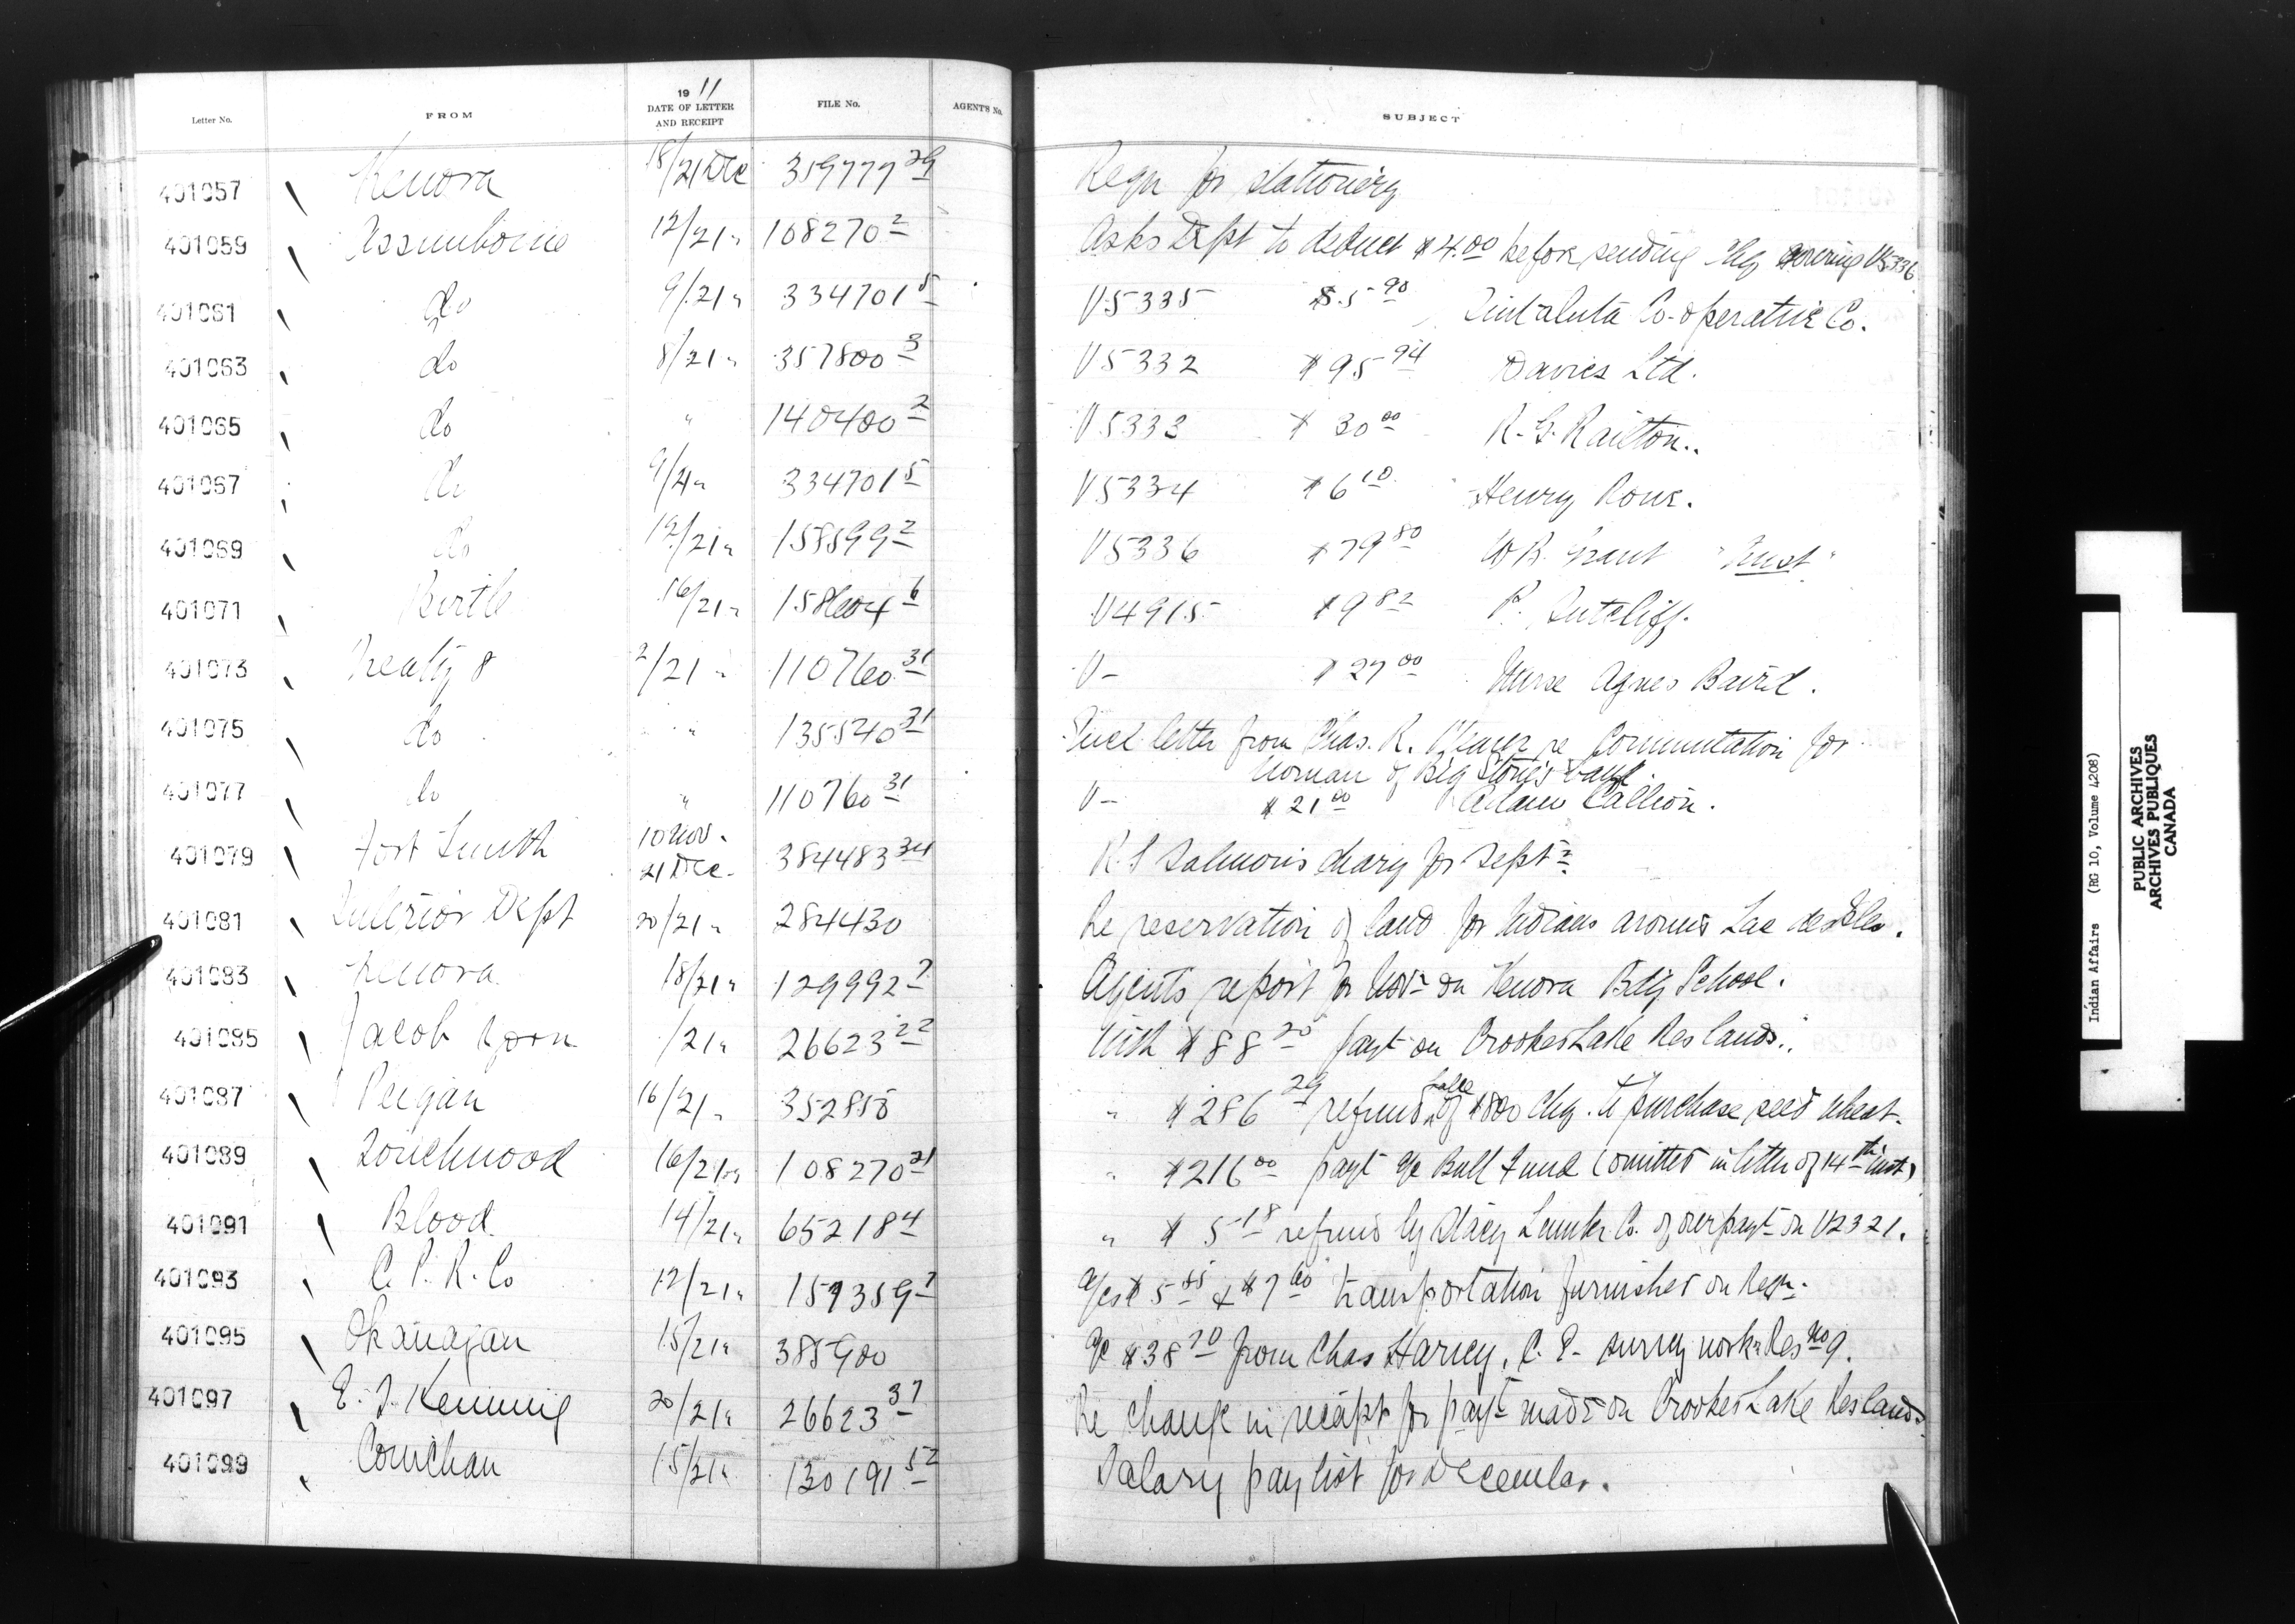 Letter No. FROM 1911 DATE OF LETTER AND RECEIPT FILE No. AGENT'S No. SUBJECT
401057 Kenora 18/21 Dec 359777 29 Reqn for stationery
401059 Assiniboine 12/21 " 108270 2 Asks Dept to deduct $4.00 before sending chq covering V5336
401061 do 9/21 " 334701 5 V5335 $5.90 Sintaluta Co-operative Co.
401063 do 8/21 " 357800 3 V5332 $95 94 Davies Ltd.
401065 do " 140400 2 V5333 $30 00 R. G. Railton.
401067 do 9/21 " 334701 5 V5334 $6 10 Henry Rour.
401069 do 12/21 " 158599 2 V5336 $79 80 W R. Grant "Trust"
401071 Birtle 16/21 " 158604 6 V4915 $9 82 P. Sutcliff.
401073 Treaty 8 2/21 " 110760 31 V- $27 00 Nurse Agnes Baird.
401075 do " " 135540 31 letter from Chas. R. re Commutation for
woman of Big Stone's band
401077 do " 110760 31 V- $21 00 Adam Callion.
401079 Fort Smith 10 Nov. 21 Dec. 384483 34 R. S Salmon's diary for Sept.
401081 Interior Dept 20/21 " 284430 Re reservation of land for Indians around Lac des Isles.
401083 Kenora 18/21 " 129992 7 Agents report for Nov on Kenora Bdg School.
401085 Jacob /21 " 26623 22 With $88 20 payt on Crooked Lake Res lands.
401087 Peigan 16/21 " 352850 " $286 29 refund balce of $800 chq. to purchase seed wheat.
401089 Touchwood 16/21 " 108270 21 " $216 00 payt a/c Bull Fund (omitted in letter of 14th inst)
401091 Blood 14/21 " 65218 4 " $5 18 refund by Stacy Lumber Co. of overpayt on V2321.
401093 C. P. R. Co 12/21 " 159359 7 a/cs $5 85 & $7 60 transportation furnished on Reqn.
401095 Okanagan 15/21 " 385900 a/c $38 70 from Chas Harvey, C. E. survey work Res No 9.
401097 E. J. 20/21 " 26623 37 Re change in receipt for payt made on Crooked Lake Res lands.
401099 Cowichan 15/21 " 130191 52 Salary paylist for December.
Indian Affairs (RG 10, Volume 4208)
PUBLIC ARCHIVES
ARCHIVES PUBLIQUES
CANADA